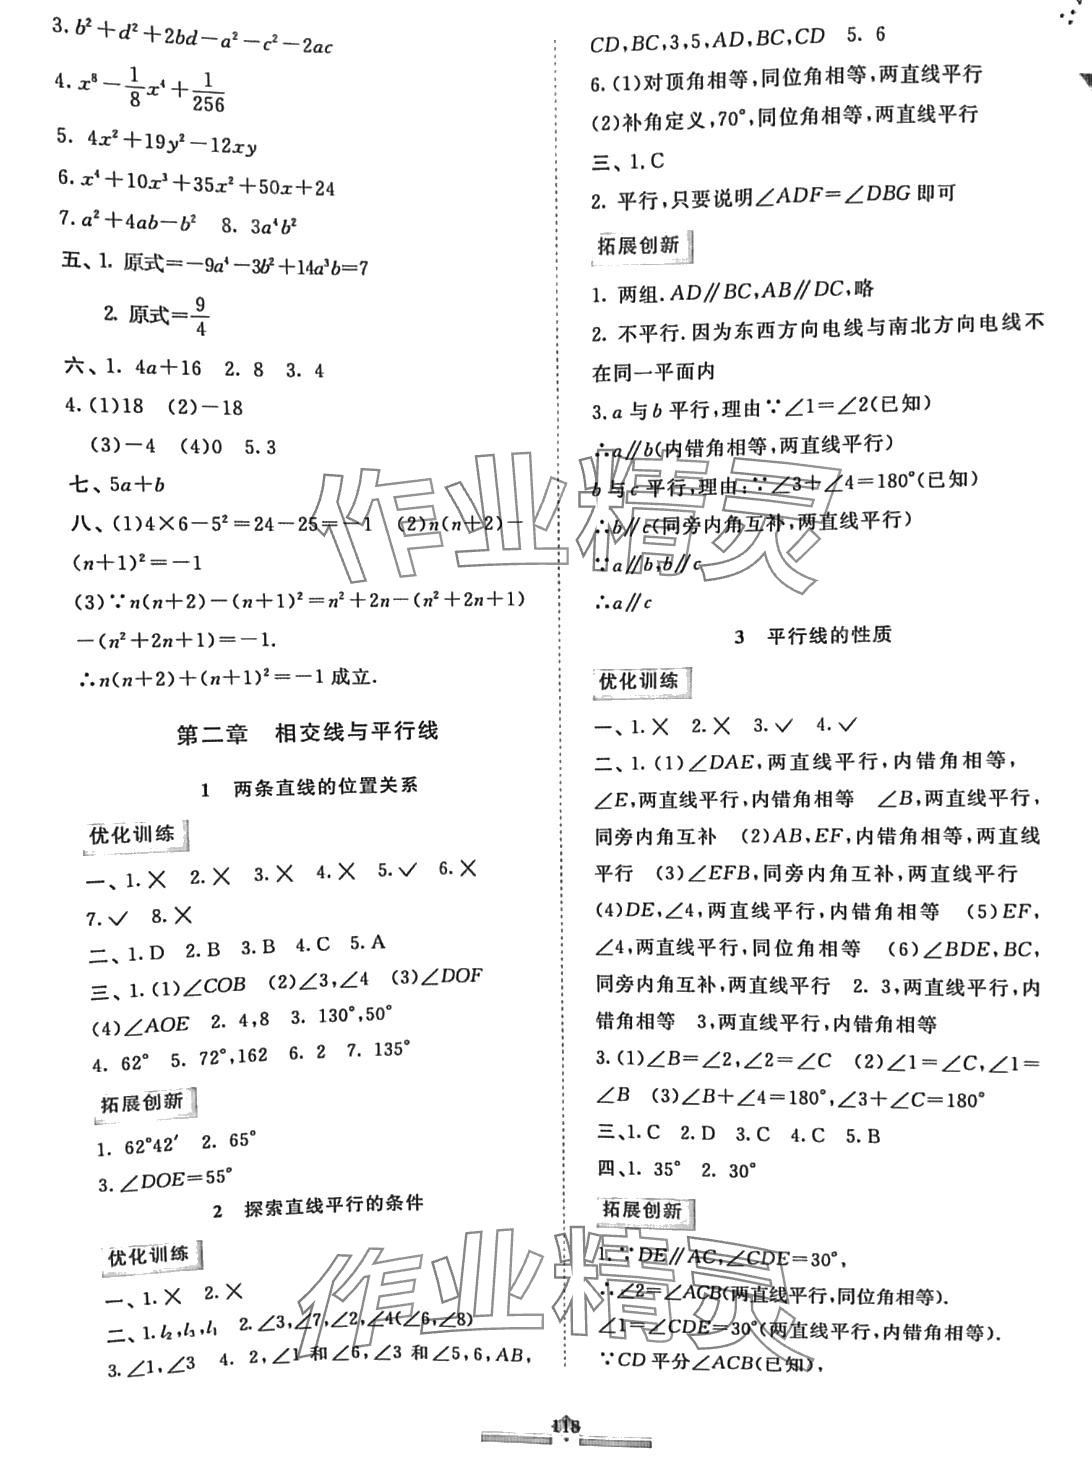 3. b²+d²+2bd-a²-c²-2ac
4. x⁸-1/8x⁴+1/256
5. 4x²+19y²-12xy
6. x⁴+10x³+35x²+50x+24
7. a²+4ab-b²  8. 3a⁴b²
五、1. 原式=-9a⁴-3b²+14a³b=7
2. 原式=9/4
六、1. 4a+16  2. 8  3. 4
4. (1)18  (2)-18
(3)-4  (4)0  5. 3
七、5a+b
八、(1)4×6-5²=24-25=-1  (2)n(n+2)-
(n+1)²=-1
(3)∵n(n+2)-(n+1)²=n²+2n-(n²+2n+1)
-(n²+2n+1)=-1.
∴n(n+2)+(n+1)²=-1成立.
第二章  相交线与平行线
1  两条直线的位置关系
优化训练
一、1.✕  2.✕  3.✕  4.✕  5.✓  6.✕
7.✓  8.✕
二、1. D  2. B  3. B  4. C  5. A
三、1. (1)∠COB  (2)∠3,∠4  (3)∠DOF
(4)∠AOE  2. 4,8  3. 130°,50°
4. 62°  5. 72°,162  6. 2  7. 135°
拓展创新
1. 62°42′  2. 65°
3. ∠DOE=55°
2  探索直线平行的条件
优化训练
一、1.✕  2.✕
二、1. l₂,l₃,l₁  2. ∠3,∠7,∠2,∠4(∠6,∠8)
3. ∠1,∠3  4. 2,∠1 和∠6,∠3 和∠5,6,AB,
CD,BC,3,5,AD,BC,CD  5. 6
6. (1)对顶角相等,同位角相等,两直线平行
(2)补角定义,70°,同位角相等,两直线平行
三、1. C
2. 平行,只要说明∠ADF=∠DBG 即可
拓展创新
1. 两组. AD∥BC,AB∥DC,略
2. 不平行. 因为东西方向电线与南北方向电线不
在同一平面内
3. a 与 b 平行,理由∵∠1=∠2(已知)
∴a∥b(内错角相等,两直线平行)
b 与 c 平行,理由:∵∠3+∠4=180°(已知)
∴b∥c(同旁内角互补,两直线平行)
∵a∥b,b∥c
∴a∥c
3  平行线的性质
优化训练
一、1.✕  2.✕  3.✓  4.✓
二、1. (1)∠DAE,两直线平行,内错角相等,
∠E,两直线平行,内错角相等  ∠B,两直线平行,
同旁内角互补  (2)AB,EF,内错角相等,两直线
平行  (3)∠EFB,同旁内角互补,两直线平行
(4)DE,∠4,两直线平行,内错角相等  (5)EF,
∠4,两直线平行,同位角相等  (6)∠BDE,BC,
同旁内角互补,两直线平行  2. 3,两直线平行,内
错角相等  3,两直线平行,内错角相等
3. (1)∠B=∠2,∠2=∠C  (2)∠1=∠C,∠1=
∠B  (3)∠B+∠4=180°,∠3+∠C=180°
三、1. C  2. D  3. C  4. C  5. B
四、1. 35°  2. 30°
拓展创新
1. ∵DE∥AC,∠CDE=30°,
∴∠2=∠ACB(两直线平行,同位角相等).
∠1=∠CDE=30°(两直线平行,内错角相等).
∵CD 平分∠ACB(已知),
118
作业精灵
作业精灵